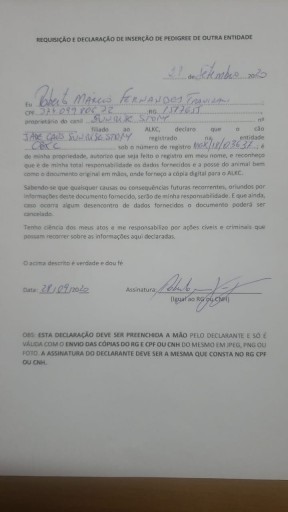 REQUISIÇÃO E DECLARAÇÃO DE INSERÇÃO DE PEDIGREE DE OUTRA ENTIDADE
de Setembro 2020
Eu Roberto Marcio Fernandes
CPF RG
proprietário do canil SUNRISE STORY nº
filiado ao ALKC, declaro que o cão
SUNRISE STORY registrado na entidade
CBKC sob o número de registro e
de minha propriedade, autorizo que seja feito o registro em meu nome, e reconheço
que é de minha total responsabilidade os dados fornecidos e a posse do animal bem
como o documento original em mãos, onde forneço a cópia digital para o ALKC.
Sabendo-se que quaisquer causas ou consequências futuras recorrentes, oriundos por
informações deste documento fornecido, serão de minha responsabilidade. E que ainda,
caso ocorra algum desencontro de dados fornecidos o documento poderá ser
cancelado.
Tenho ciência dos meus atos e me responsabilizo por ações civeis e criminais que
possam recorrer sobre as informações aqui declaradas.
O acima descrito é verdade e dou fé
Data: 28/09/2020 Assinatura
(Igual ao RG ou CNH)
OBS: ESTA DECLARAÇÃO DEVE SER PREENCHIDA A MÃO PELO DECLARANTE E SÓ É
VÁLIDA COM O ENVIO DAS CÓPIAS DO RG E CPF OU CNH DO MESMO EM JPEG, PNG OU
FOTO. A ASSINATURA DO DECLARANTE DEVE SER A MESMA QUE CONSTA NO RG CPF
OU CNH.